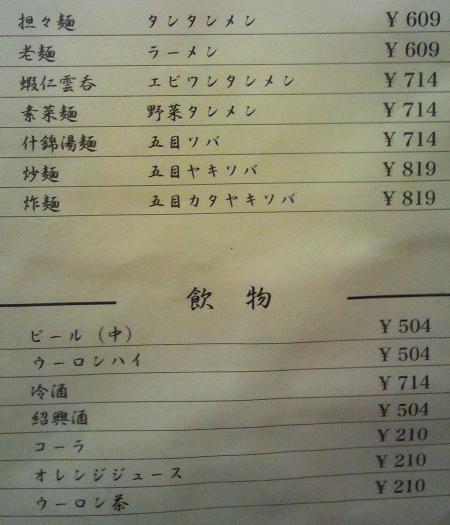 担々麺 タンタンメン ¥609
老麺 ラーメン ¥609
蝦仁雲呑 エビワンタンメン ¥714
素菜麺 野菜タンメン ¥714
什錦湯麺 五目ソバ ¥714
炒麺 五目ヤキソバ ¥819
炸麺 五目カタヤキソバ ¥819
飲物
ビール(中) ¥504
ウーロンハイ ¥504
冷酒 ¥714
紹興酒 ¥504
コーラ ¥210
オレンジジュース ¥210
ウーロン茶 ¥210